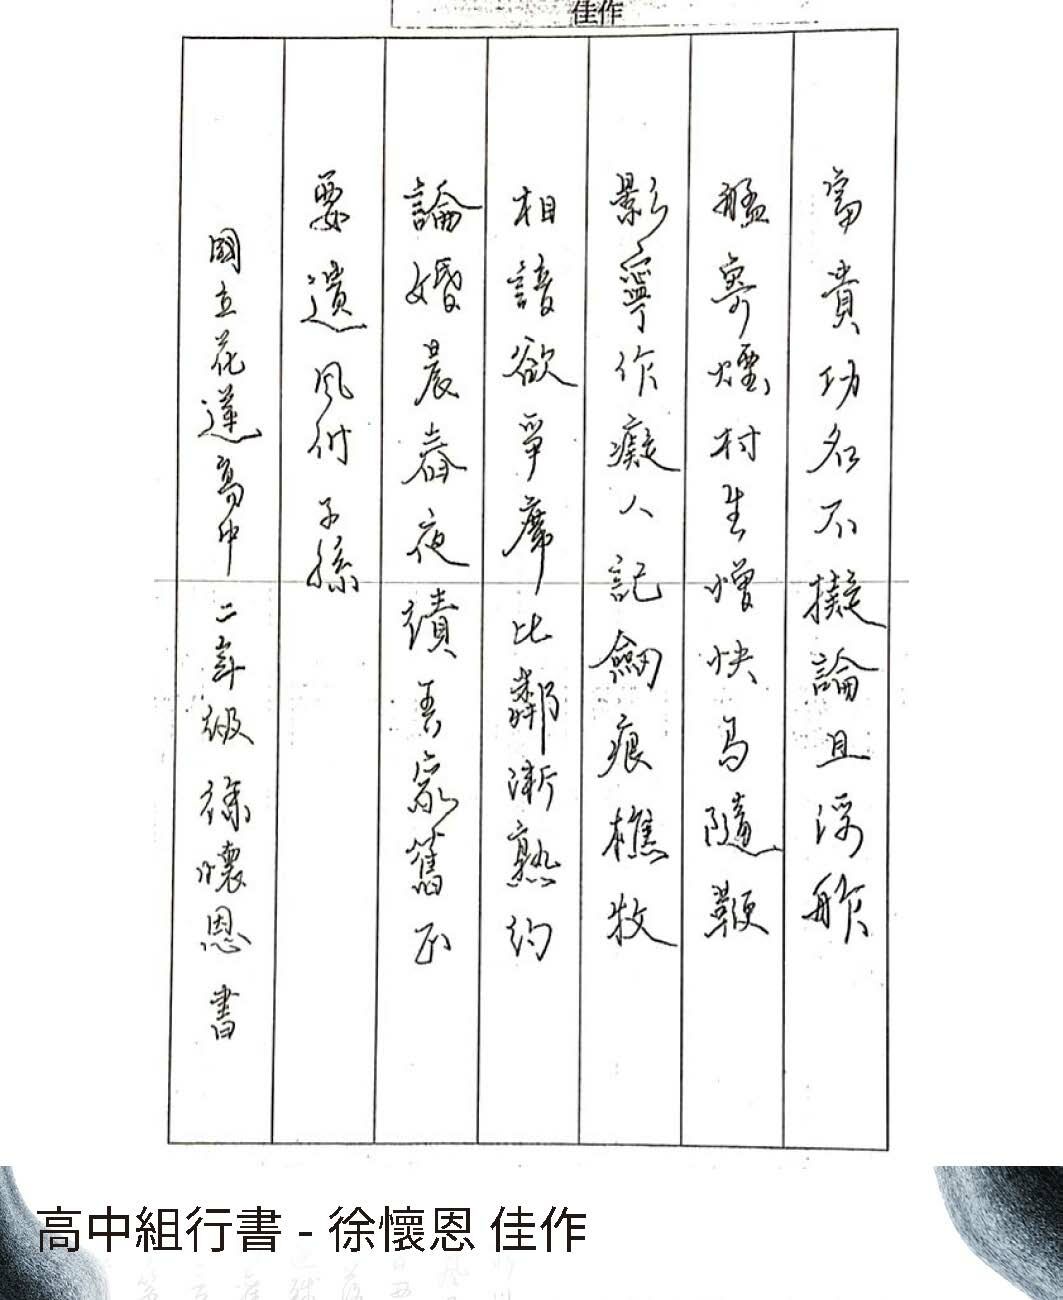 佳作
富貴功名不擬論且浮舴
艋寄煙村生憎快馬隨鞭
影寧作癡人記劒痕樵牧
相諳欲爭席比鄰漸熟約
論婚晨舂夜績吾家舊正
要遺風付子孫
國立花蓮高中二年級徐懷恩書
高中組行書 - 徐懷恩 佳作